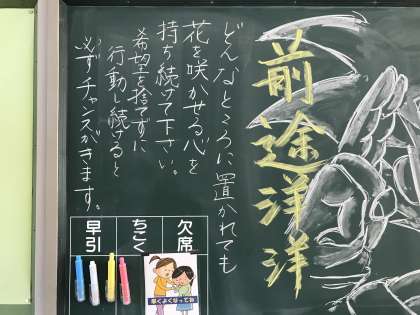 前途洋洋
どんなところに置かれても
花を咲かせる心を
持ち続けて下さい。
希望を捨てずに
行動し続けると
必ずチャンスがきます。
欠席
ちこく
早引
早くよくなってね